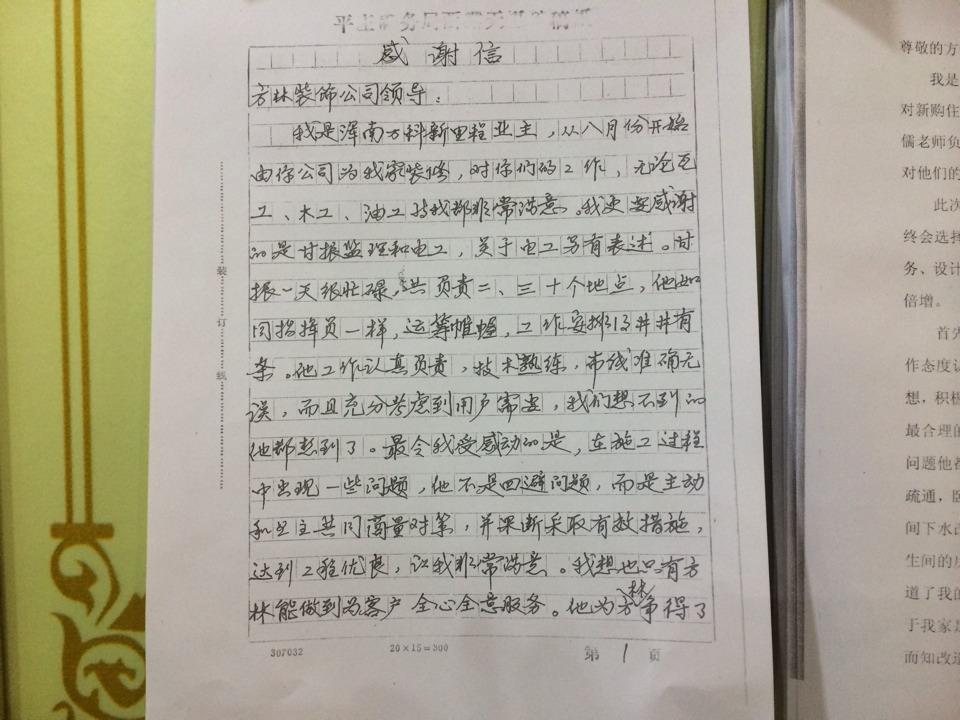 感谢信
方林装饰公司领导：
我是浑南万科新里程业主，从八月份开始
由你公司为我家装修，对你们的工作，无论瓦
工、木工、油工等我都非常满意。我更要感谢
的是甘振监理和电工，关于电工另有表述。甘
振一天很忙碌，共负责二、三十个地点，他如
同指挥员一样，运筹帷幄，工作安排得井井有
条。他工作认真负责，技术熟练，布线准确无
误，而且充分考虑到用户需要，我们想不到的
他都想到了。最令我受感动的是，在施工过程
中出现一些问题，他不是回避问题，而是主动
和业主共同商量对策，并果断采取有效措施，
达到工程优良，让我非常满意。我想也只有方
林能做到为客户全心全意服务。他为方林争得了
307032
20×15=300
第 1 页
装
订
线
尊敬的方
我是
对新购住
儒老师负
对他们的
此次
终会选择
务、设计
倍增。
首先
作态度认
想，积极
最合理的
问题他都
疏通，卧
间下水改
生间的
道了我的
于我家是
而知改造